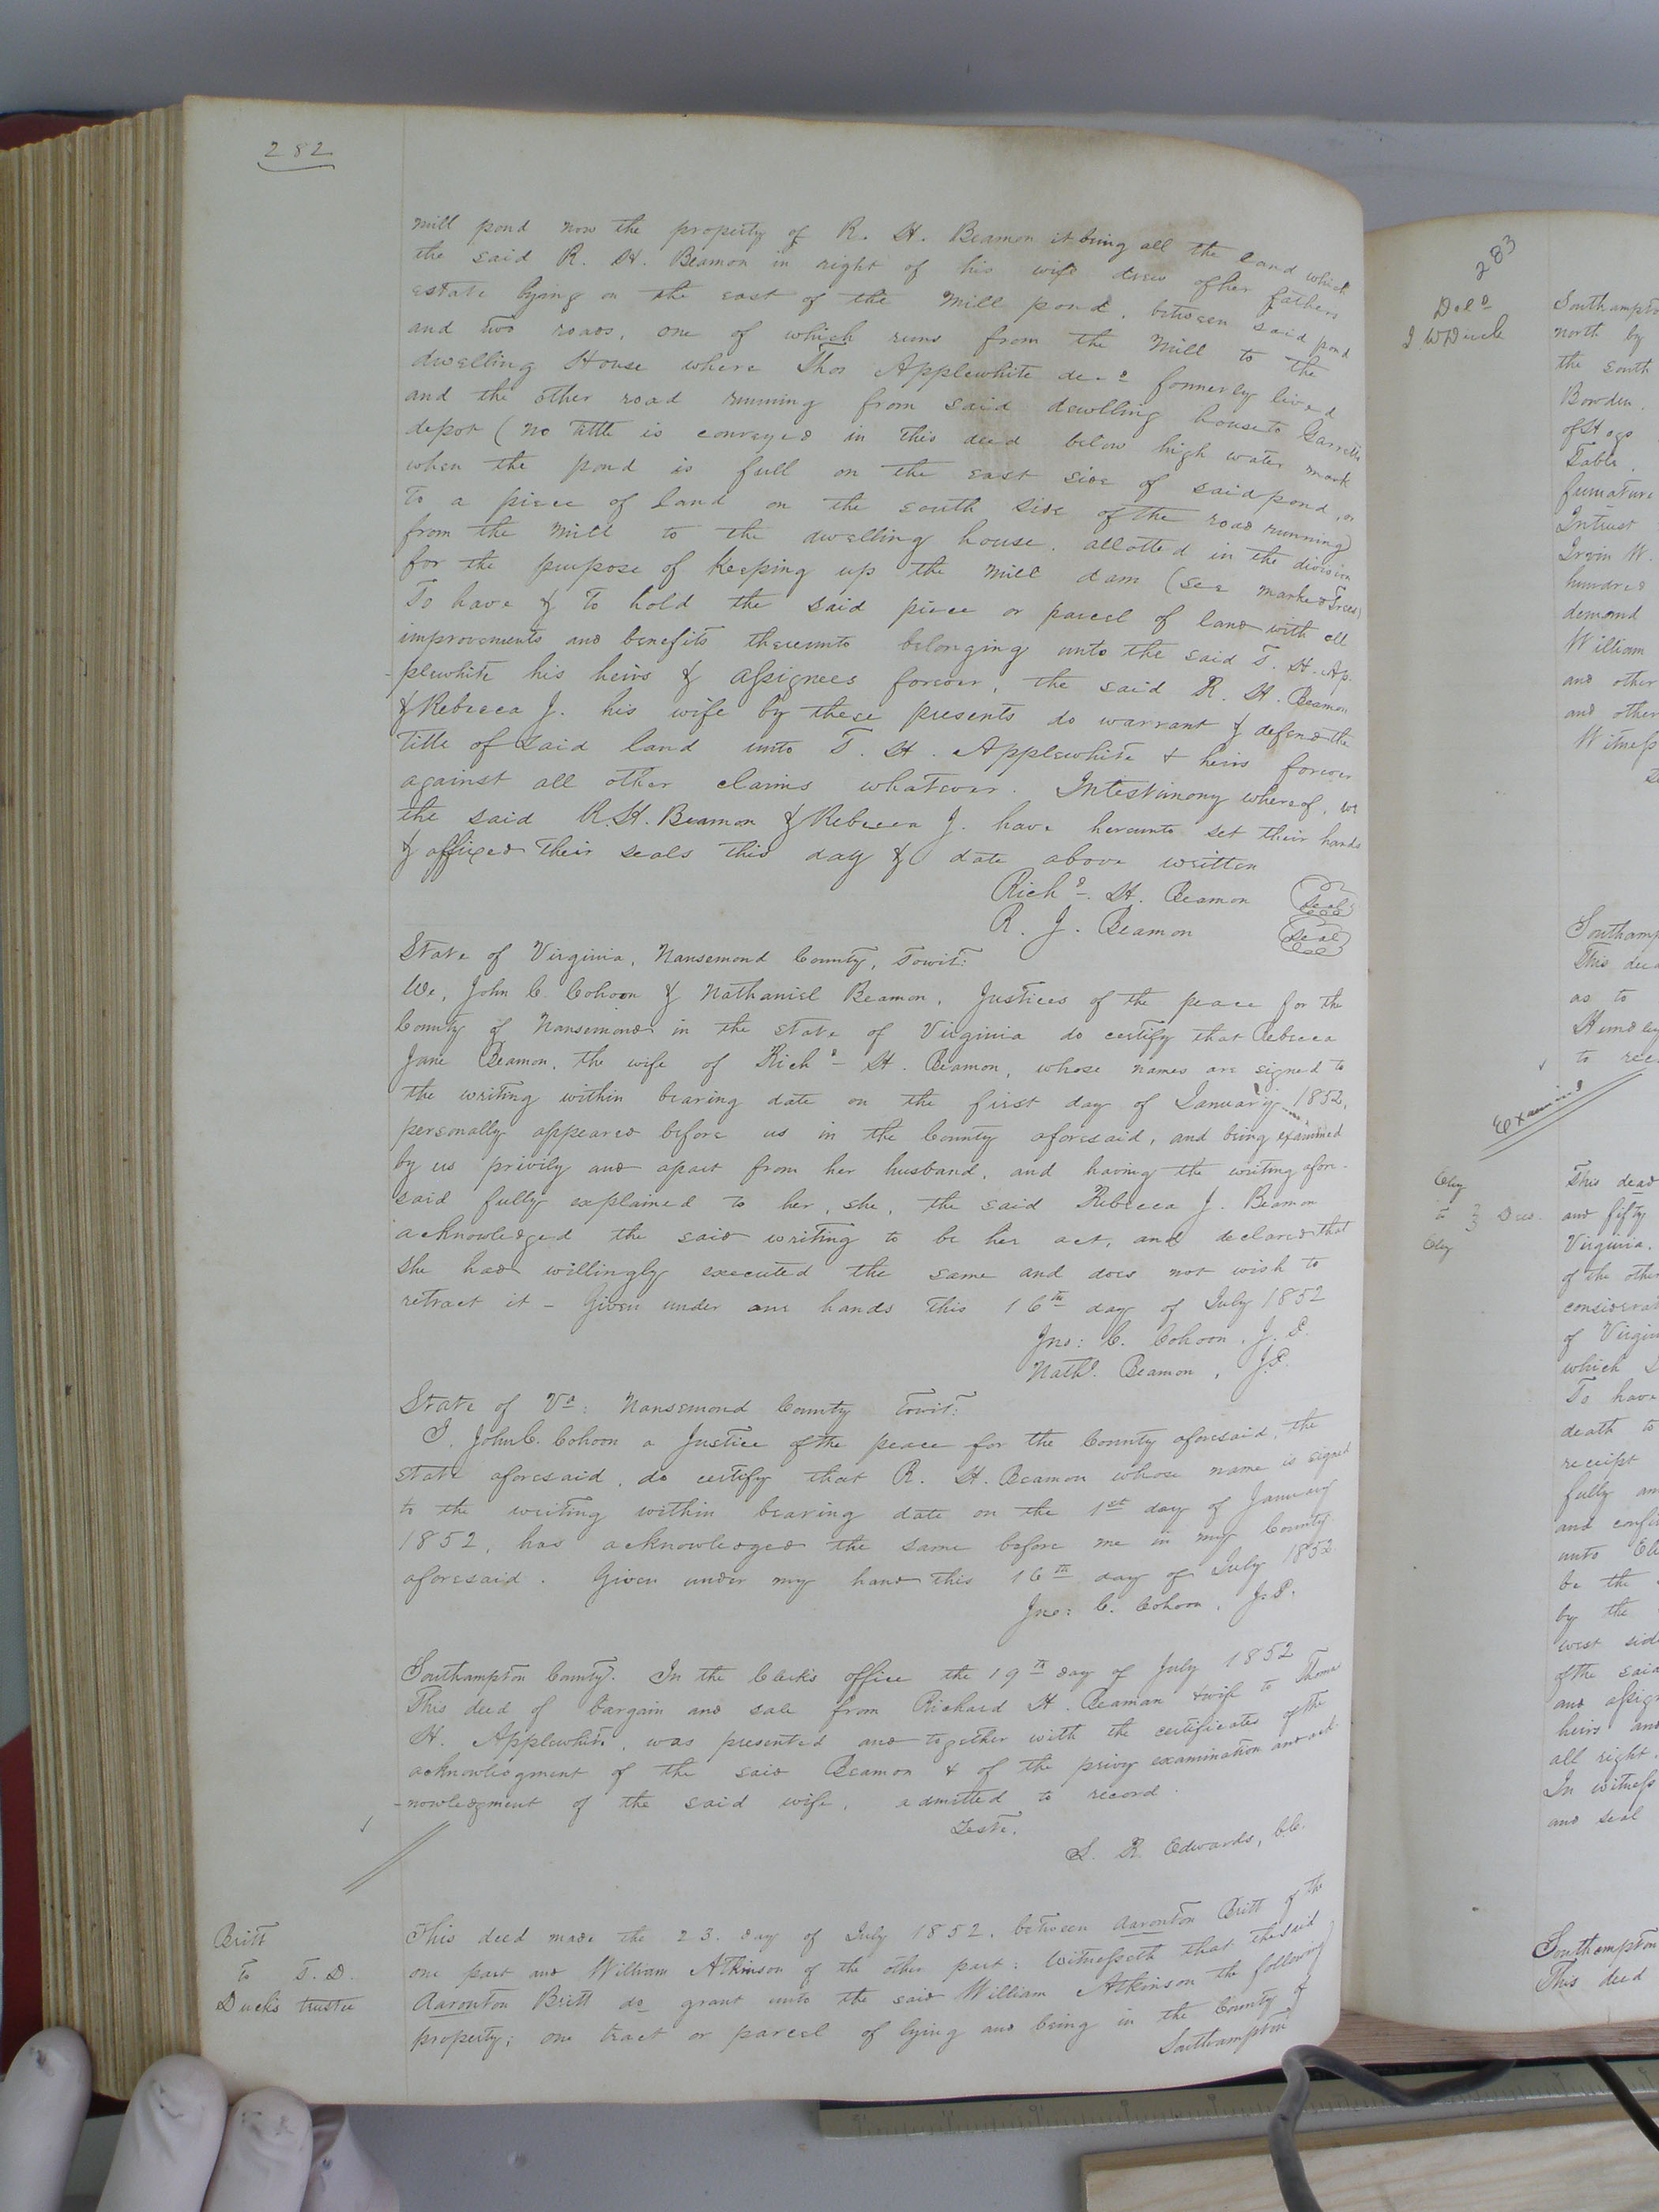 282
mill pond now the property of R. H. Beamon it being all the land which
the said R. H. Beamon in right of his wife drew of her fathers
estate lying on the east of the mill pond, between said pond
and two roads, one of which runs from the Mill to the
dwelling House where Thos Applewhite decd formerly lived
and the other road running from said dwelling house to Garretts
depot (no title is conveyed in this deed below high water mark
when the pond is full on the east side of said pond, or
to a piece of land on the south side of the road running
from the mill to the dwelling house, allotted in the division
for the purpose of keeping up the mill dam (see marked trees)
To have & to hold the said piece or parcel of land with all
improvements and benefits thereunto belonging unto the said T. H. Ap-
-plewhite his heirs & assignees forever, the said R. H. Beamon
& Rebecca J. his wife by these presents do warrant & defend the
title of said land unto T. H. Applewhite & heirs forever
against all other claims whatever. In testimony whereof, we
the said R. H. Beamon & Rebecca J. have hereunto set their hands
& affixed their seals this day & date above written
Richd. H. Beamon Seal
R. J. Beamon Seal
State of Virginia, Nansemond County, Towit:
We, John C. Cohoon & Nathaniel Beamon, Justices of the peace for the
County of Nansemond in the State of Virginia do certify that Rebecca
Jane Beamon, the wife of Richd H. Beamon, whose names are signed to
the writing within bearing date on the first day of January 1852,
personally appeared before us in the County aforesaid, and being examined
by us privily and apart from her husband, and having the writing afore-
said fully explained to her, she, the said Rebecca J. Beamon
acknowledged the said writing to be her act, and declared that
she had willingly executed the same and does not wish to
retract it - Given under our hands this 16th day of July 1852
Jno: C. Cohoon, J. P.
Nathl. Beamon, J.P.
State of Va: Nansemond County Towit:
I, John C. Cohoon a Justice of the peace for the County aforesaid, the
state aforesaid, do certify that R. H. Beamon whose name is signed
to the writing within bearing date on the 1st day of January
1852, has acknowledged the same before me in my County
aforesaid. Given under my hand this 16th day of July 1852
Jno: C. Cohoon, J.P.
Southampton County: In the Clerk's office the 19th day of July 1852
This deed of bargain and sale from Richard H. Beaman & wife to Thomas
H. Applewhite, was presented and together with the certificates of the
acknowledgment of the said Beamon & of the privy examination and ack-
-nowledgment of the said wife, admitted to record.
Teste,
L. R. Edwards, C.C.
Britt
to T. D.
Duck's trustee
This deed made the 23. day of July 1852, between Aaronton Britt of the
one part and William Atkinson of the other part: Witnesseth that the said
Aaronton Britt do grant unto the said William Atkinson the following
property; one tract or parcel of lying and being in the County of
Southampton
283
Deld
J. W Duck
Southampton
north by
the south
Bowden
of Hogs
Table
furnature
Intrust
Irvin W.
hundred
demand
William
and other
and other
Witness
Southamp
This deed
as to
to rec
Examined
This deed
and fifty
Virginia.
of the other
considerat
of Virgin
which
To have
death to
receipt
fully an
and conf
unto
be the
by the
west side
of the said
and assig
heirs and
all right
In witness
and seal
Southampton
This deed